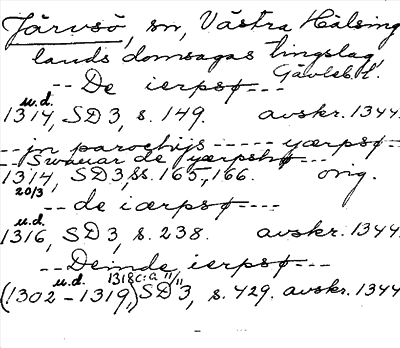 Järvsö, sn, Västra Hälsing
lands domsagas tingslag,
Gävleb. l.
-- De ierpsø ---
u.d.
1314, SD 3, s. 149. avskr. 1344.
-- jn parochijs ----- yærpsø --
-- Swauar de yærpshø ---
1314, SD 3, ss. 165, 166. orig.
20/3
-- de iærpsø ----
u.d.
1316, SD 3, s. 238. avskr. 1344
-- Deinde, ierpsø ---
u.d. 1318 c:a "/"
(1302 - 1319,) SD 3, s. 429. avskr. 1344